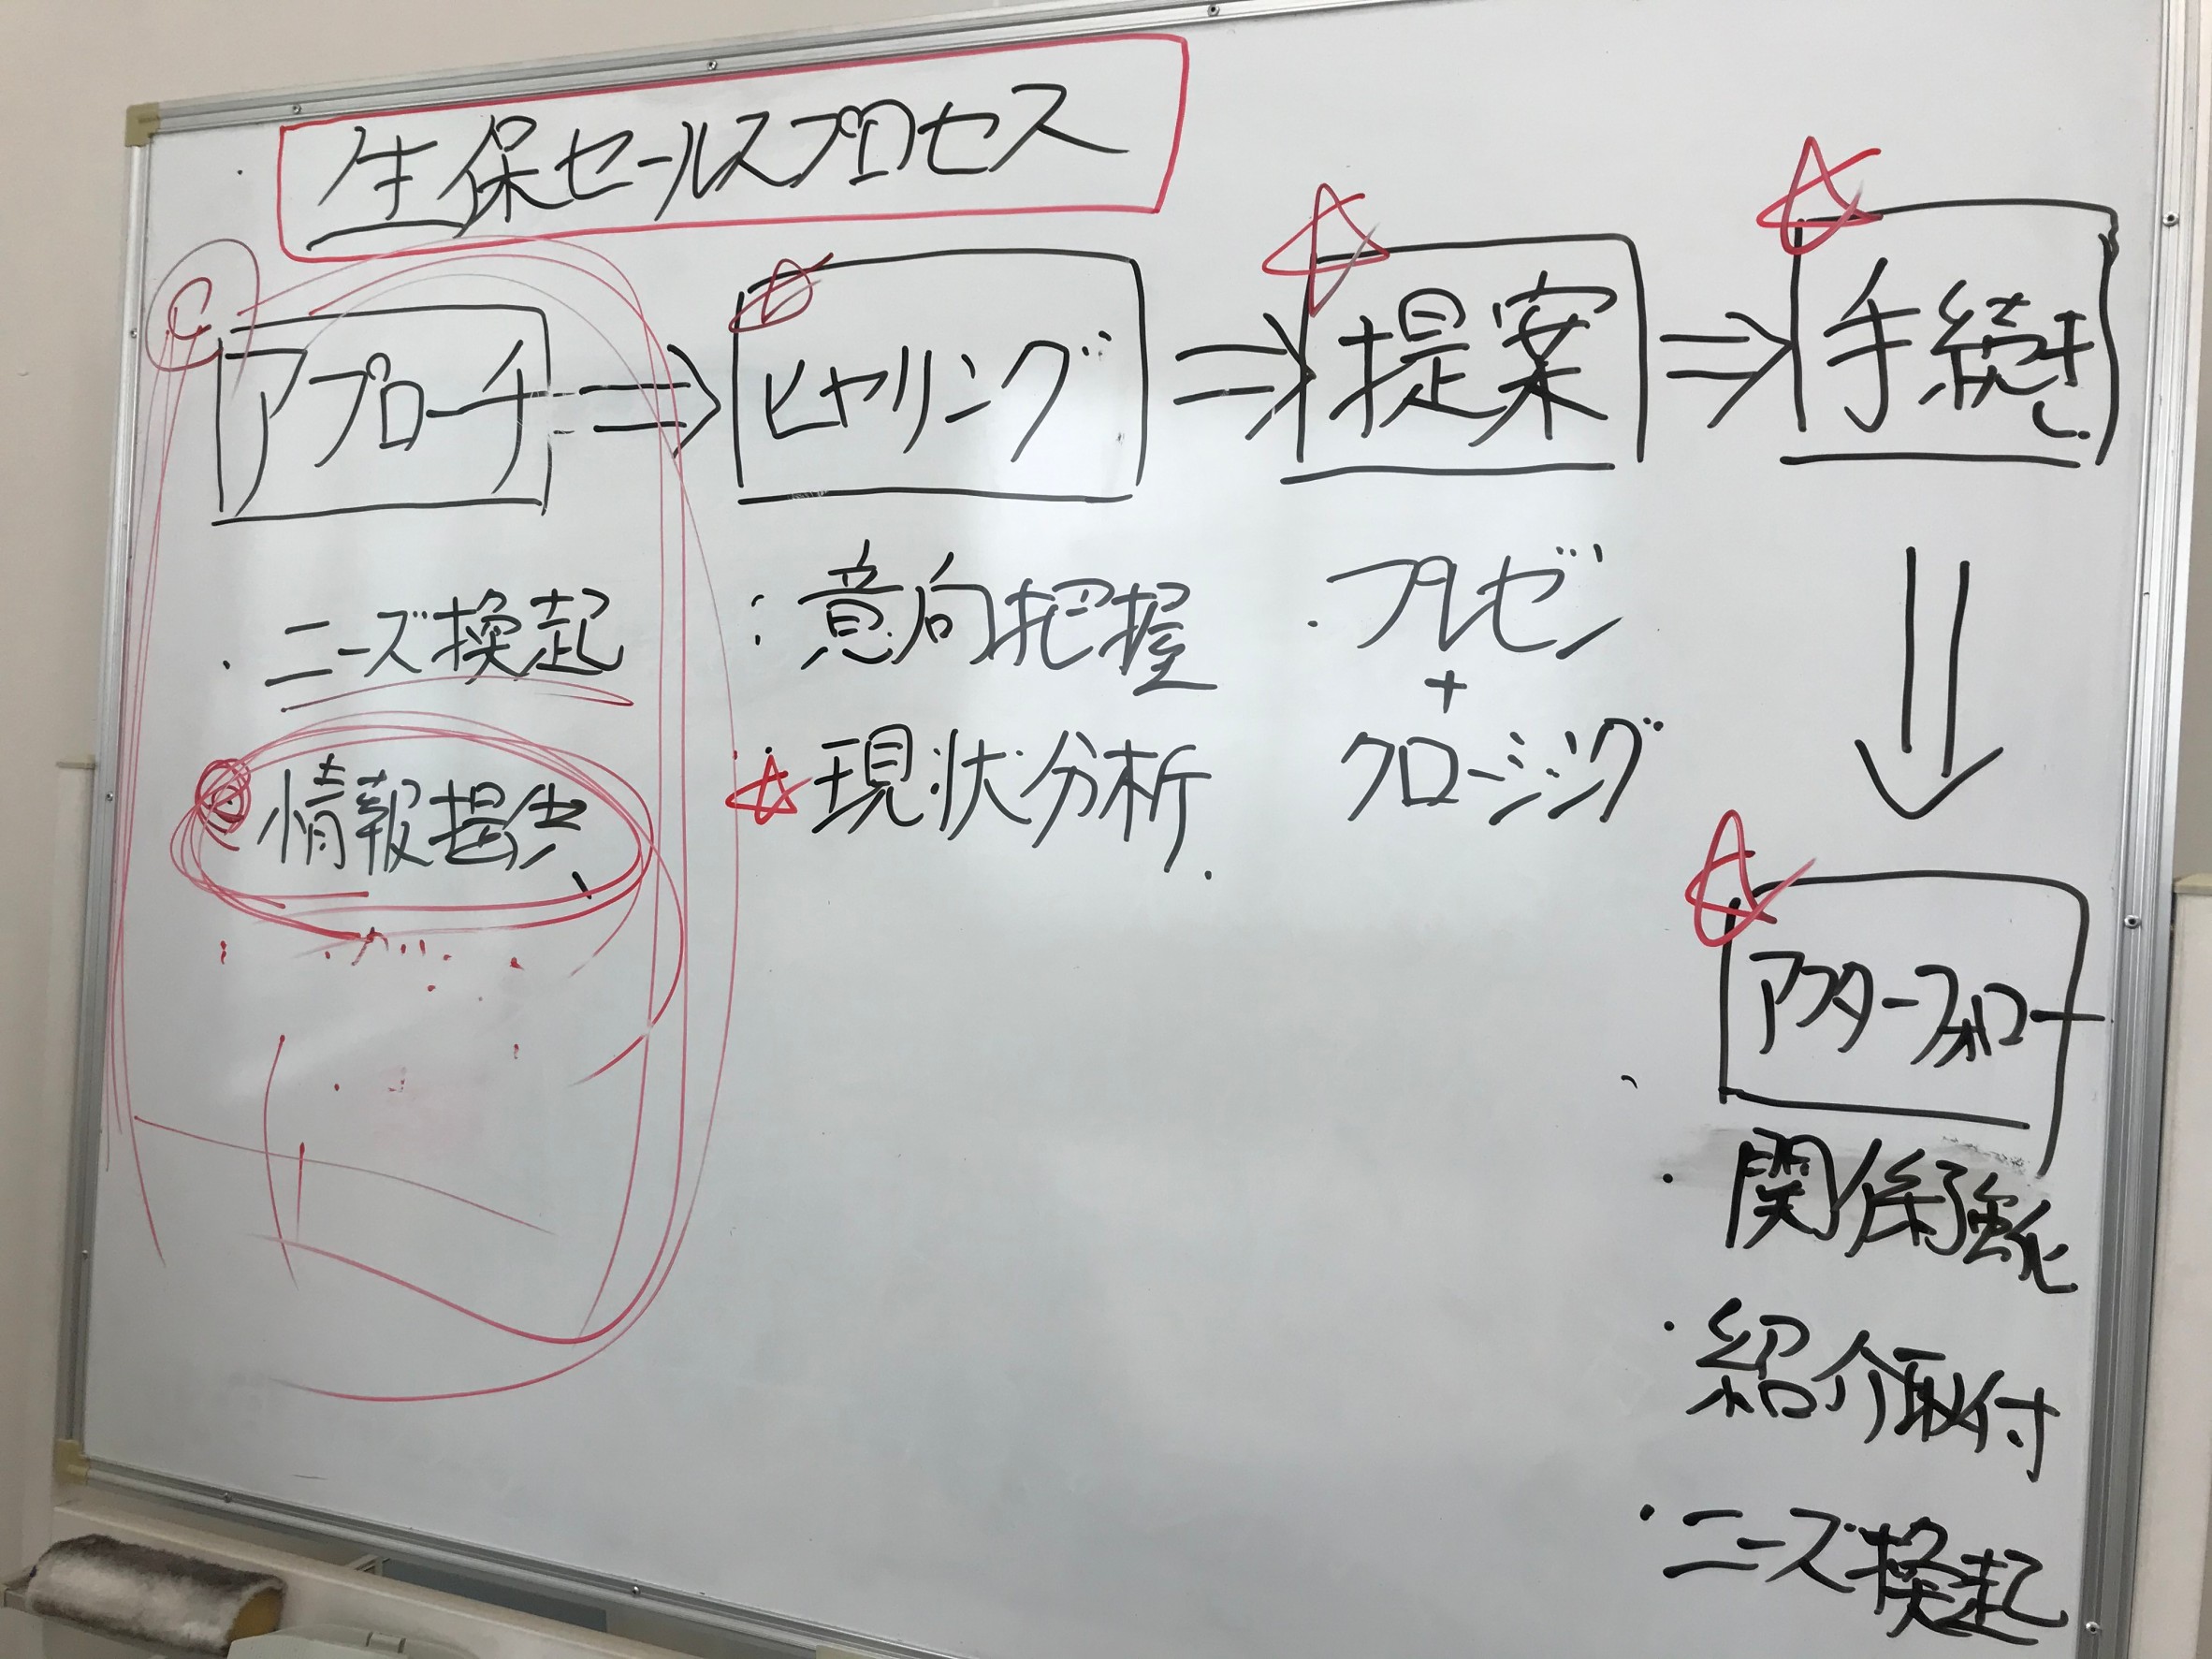 生保セールスプロセス
アプローチ ⇒ ヒヤリング ⇒ 提案 ⇒ 手続き
・ニーズ換起
情報提供
・意向把握
☆現状分析
・プレゼン
+
クロージング
アフターフォロー
・関係強化
・紹介取付
・ニーズ換起